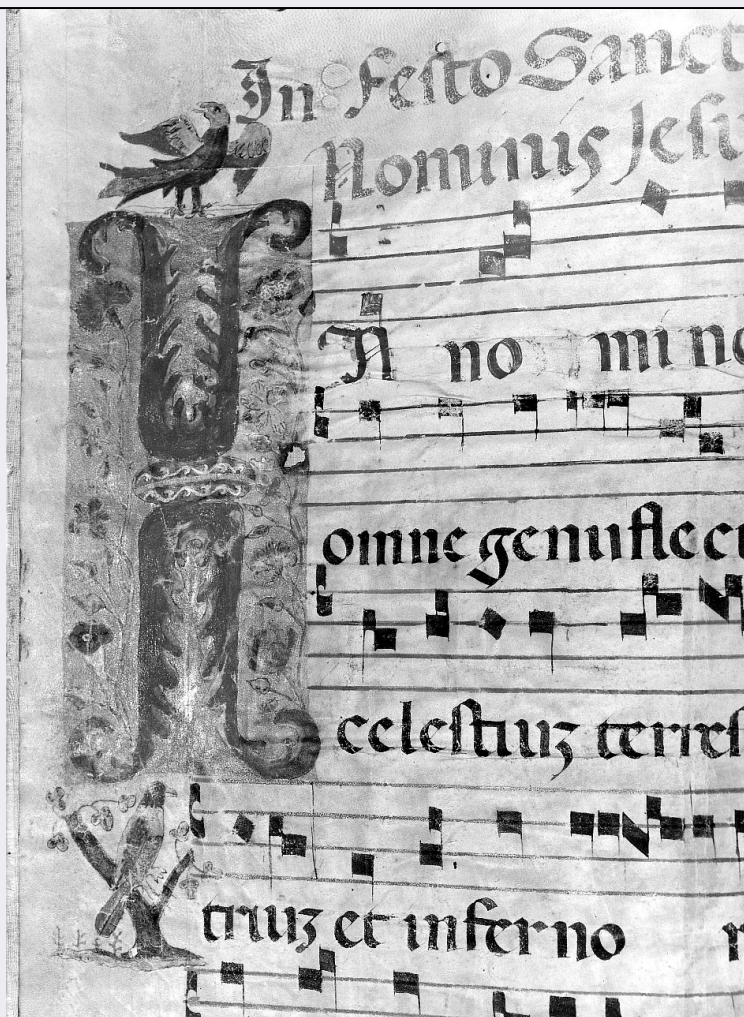 In Festo Sanct
Nominis Jesu
In no mine
omne genuflect
celestiuz terres
triuz et inferno